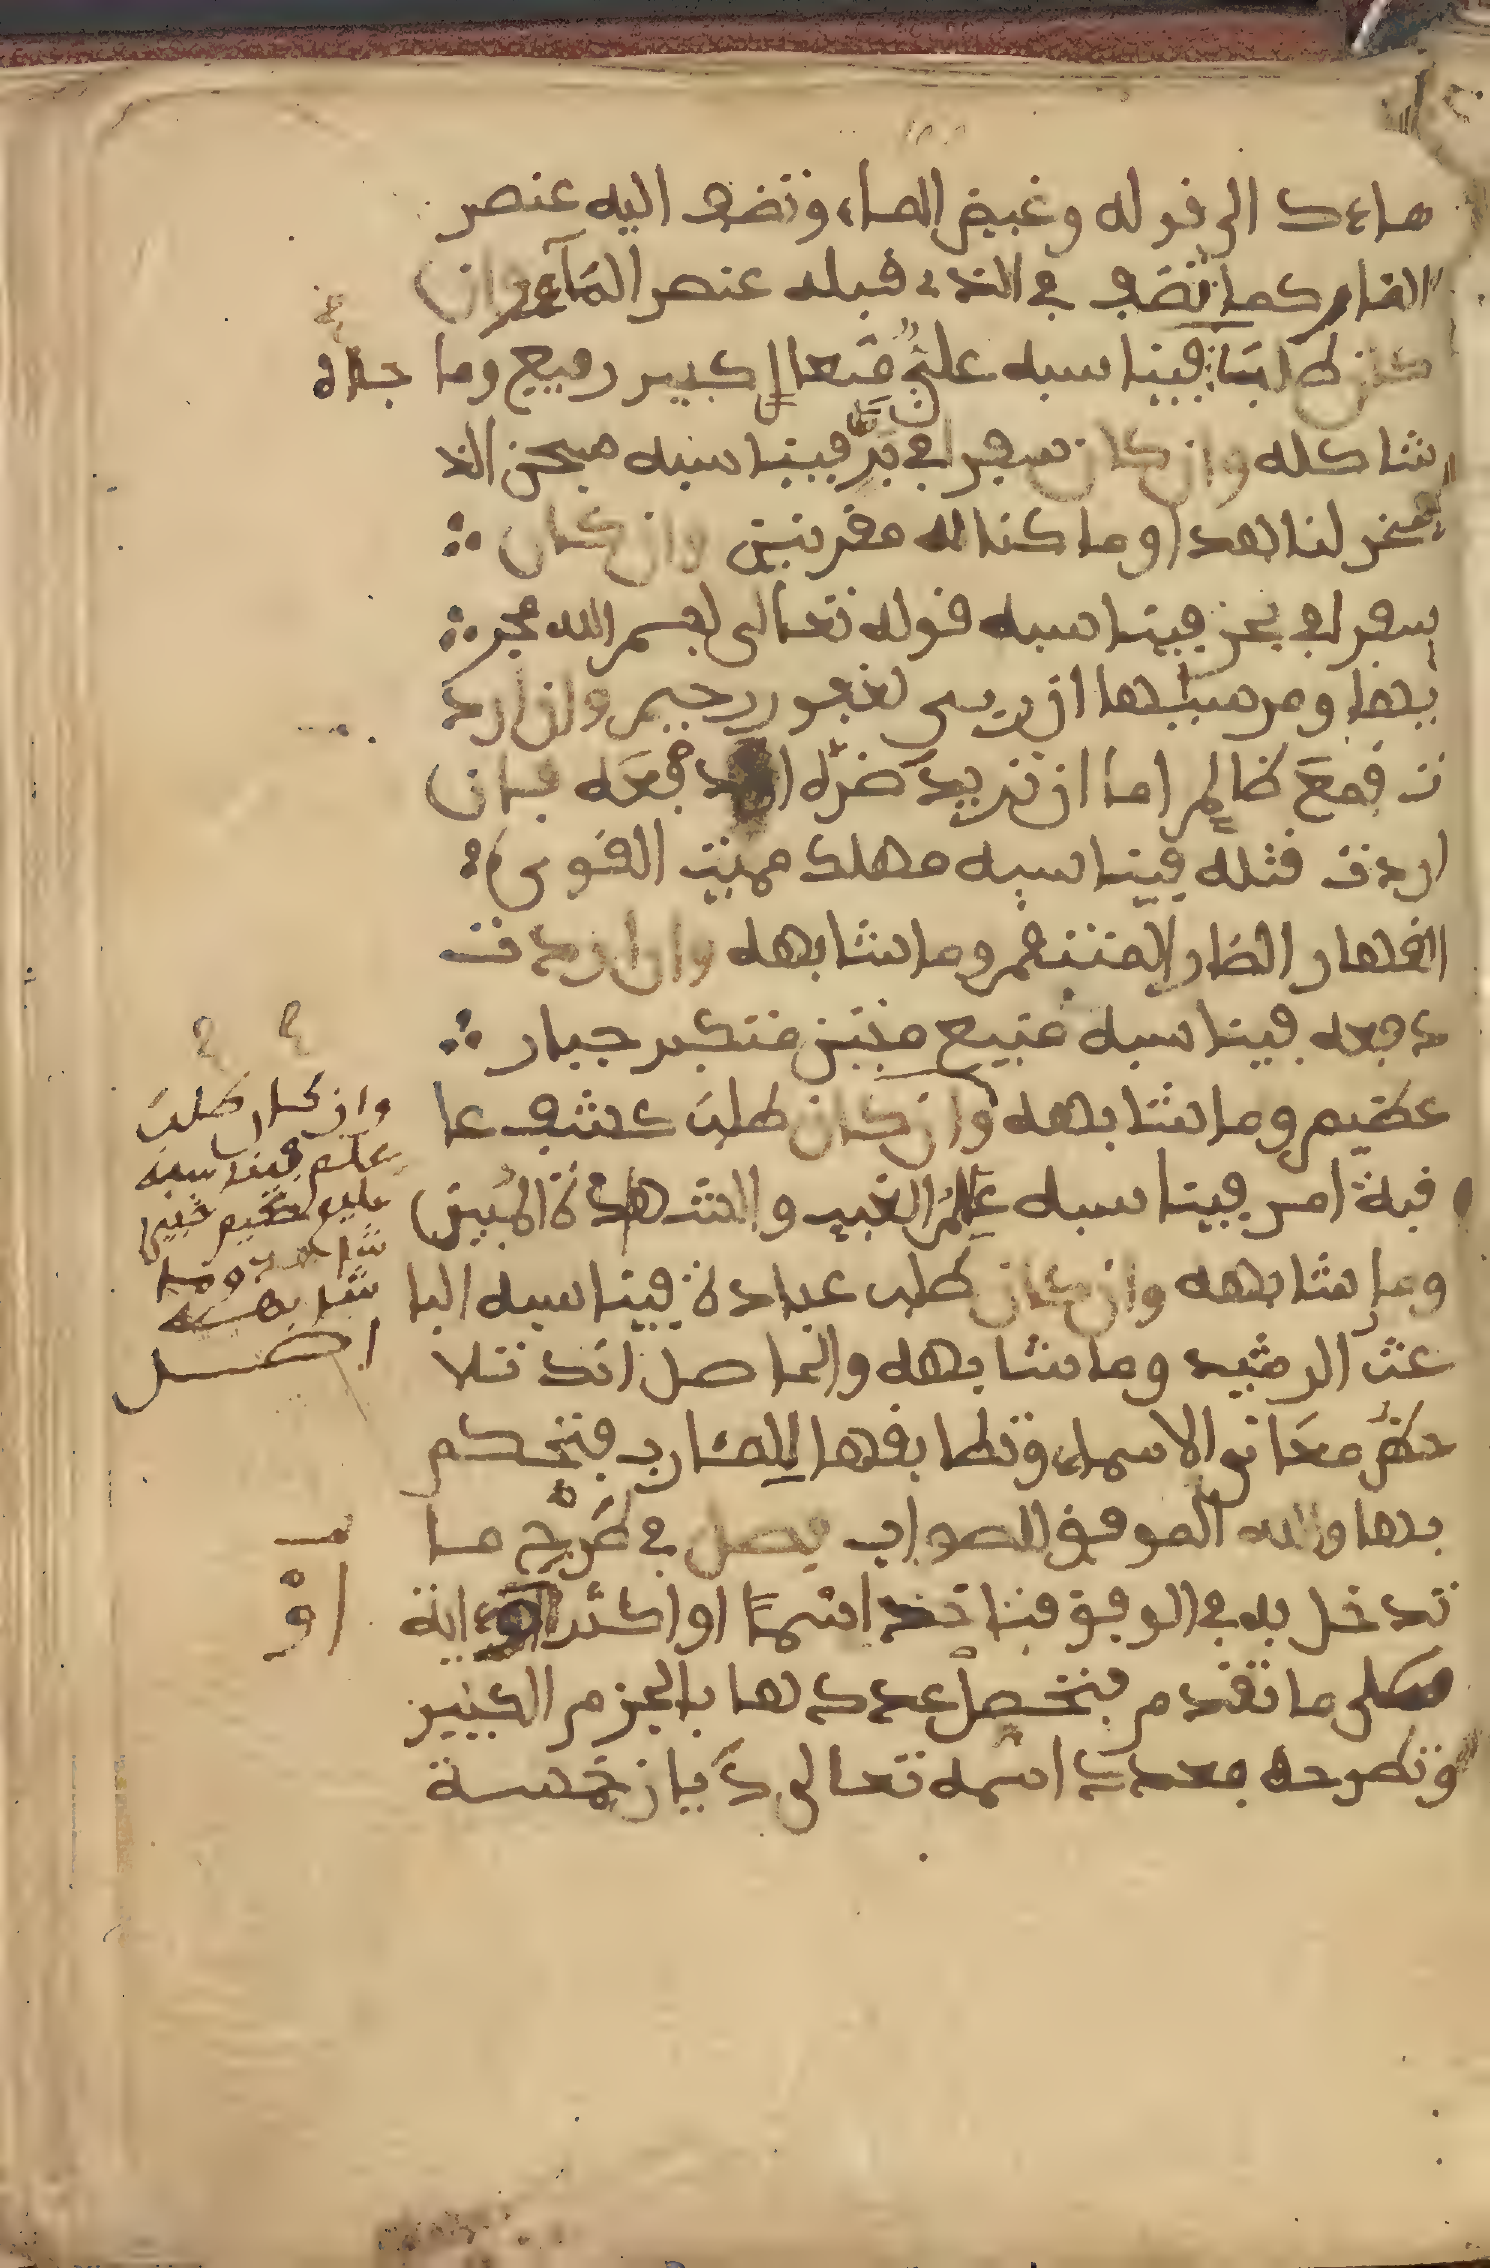 ماءك الى قوله وغيض الماء وتضف اليه عنصر
النار كما تضف في الذي قبله عنصر الماء وان
كان طالبا فيناسبه علي متعال كبير رفيع وما
شاكله وان كان سفرا في بر فيناسبه سبحن الذ
سخر لنا هذا وما كنا له مقرنين وان كان
سفرا في بحر فيناسبه قوله تعالى بسم الله مجر
يها ومرسيها ان ربي لغفور رحيم وان ارد
ت قمع ظالم اما ان تريد ضره او دفعه فان
اردت قتله فيناسبه مهلك مميت القوي
القهار الضار المنتقم وما شابهه وان اردت
دفعه فيناسبه منيع متين متكبر جبار
عظيم وما شابهه وان كان طلب كشف عا
قبة امر فيناسبه علم الغيب والشهدة المبين
وما شابهه وان كان طلب عبادة فيناسبه البا
عث الرشيد وما شابهه والحاصل انك تلا
حظ معاني الاسماء وتطابقها للمئارب فتحكم
بها والله الموفق للصواب فصل في طرح ما
تدخل به في الوفق فتاخذ اسما او اكثر اية
على ما تقدم فتحصل عددها بالجزم الكبير
وتطرحه بعدد اسمه تعالى ديان خمسة
جلاه
وان كان طلب
علم فيناسبه
عليم حكيم خبير
وما
شابهه
اصل
او